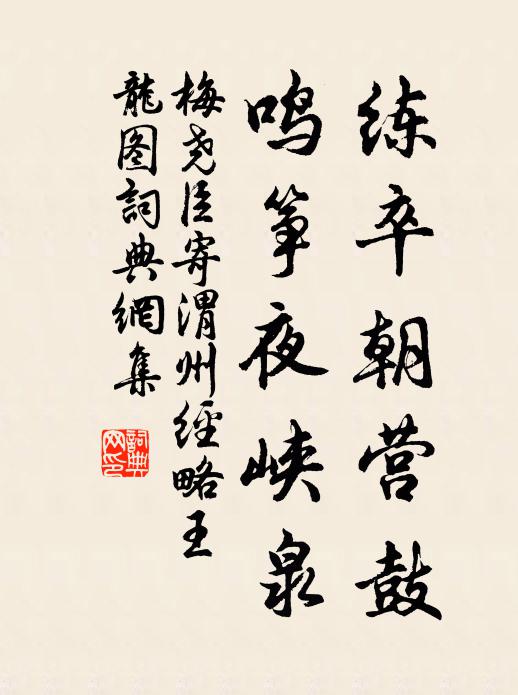 练卒朝营鼓
鸣筝夜峡泉
梅尧臣寄渭州经略王
龙图词典网集
詞典
网印